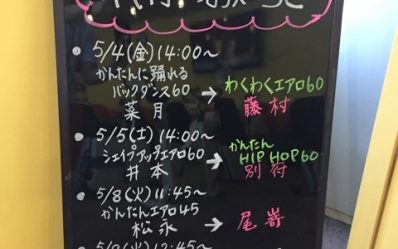 5/4(金)14:00〜
かんたんに踊れる
バックダンス60 → わくわくエアロ60
葉月 藤村
5/5(土)14:00〜
シェイプアップエアロ60 → かんたん HIP HOP 60
井本 別府
5/8(火)11:45〜
かんたんエアロ45 → 尾嵜
松永